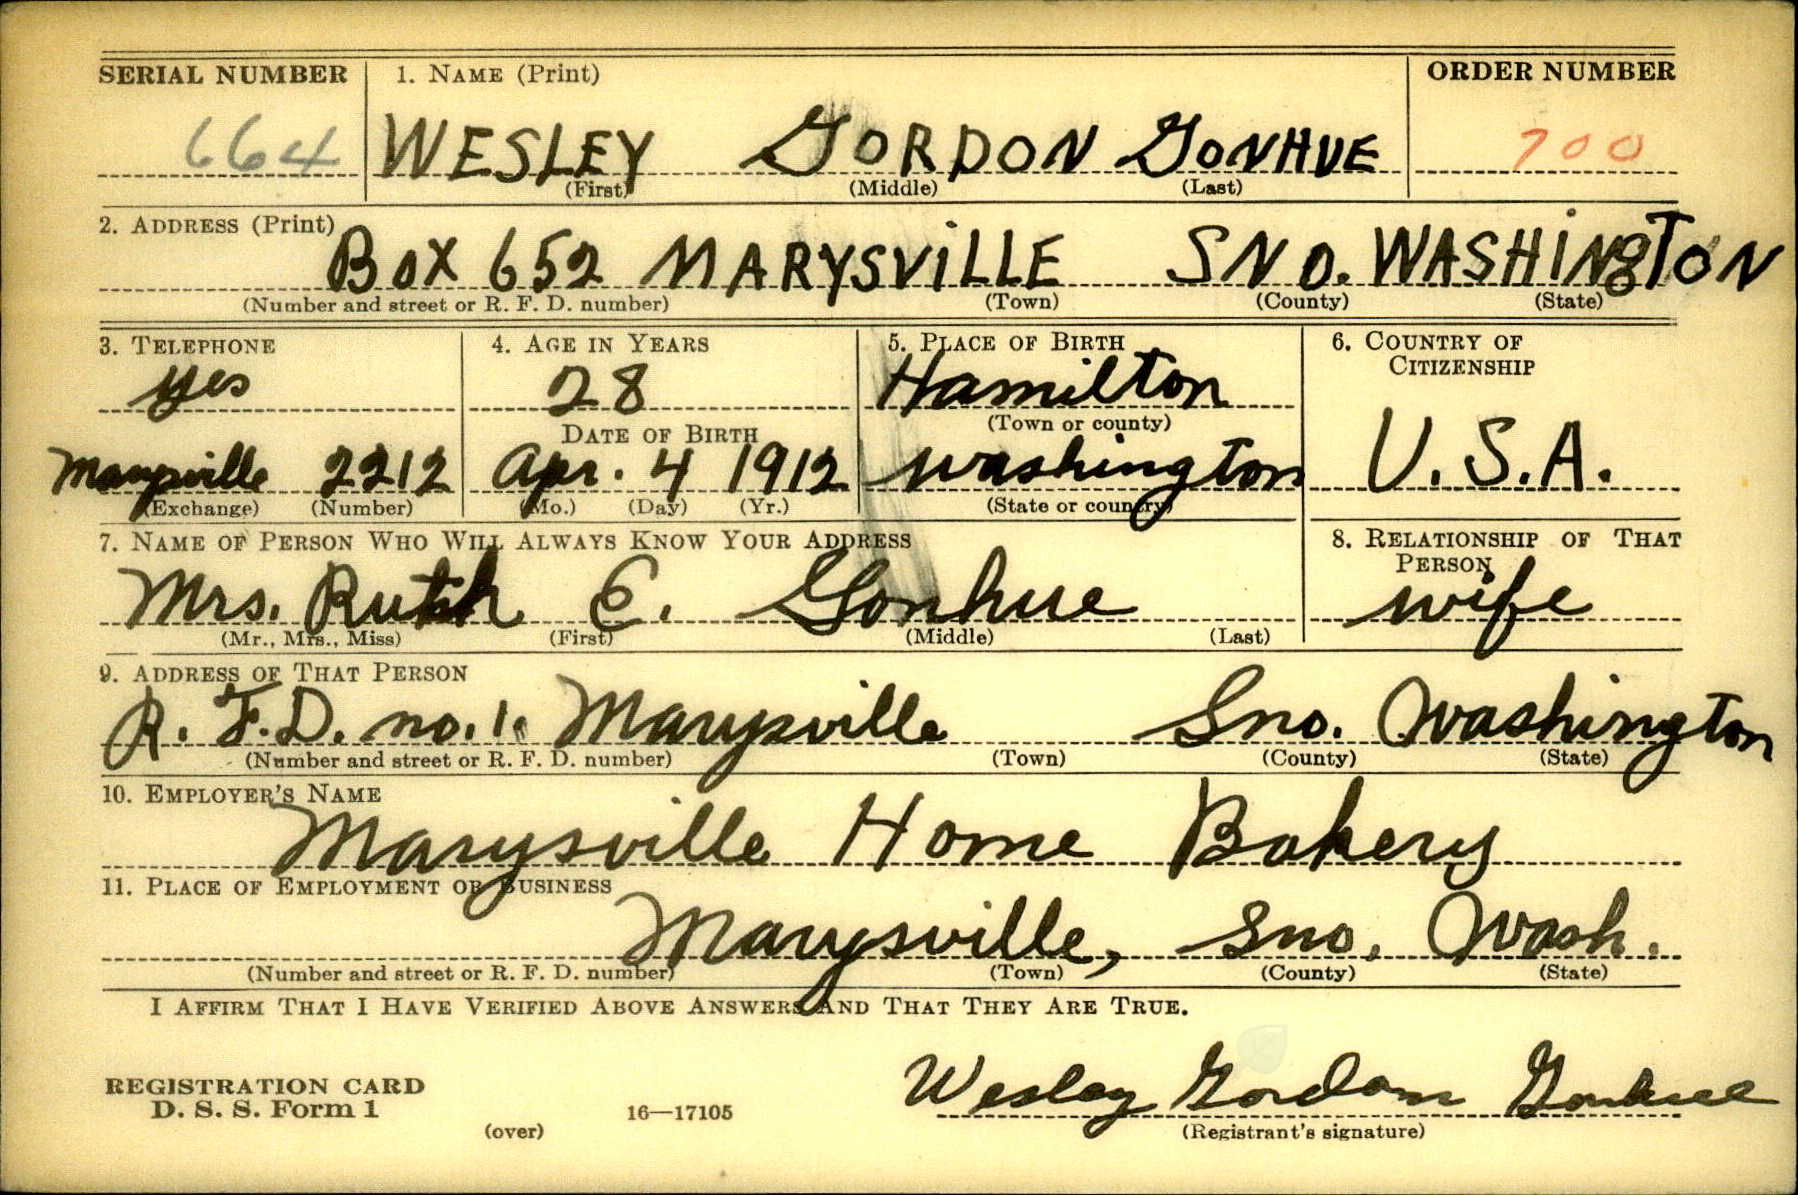 SERIAL NUMBER 1. NAME (Print) ORDER NUMBER
664 WESLEY GORDON GONHUE 700
(First) (Middle) (Last)
2. ADDRESS (Print)
BOX 652 MARYSVILLE SNO. WASHINGTON
(Number and street or R. F. D. number) (Town) (County) (State)
3. TELEPHONE 4. AGE IN YEARS 5. PLACE OF BIRTH 6. COUNTRY OF CITIZENSHIP
yes 28 Hamilton
(Town or county)
DATE OF BIRTH
Marysville 2212 Apr. 4 1912 Washington U.S.A.
(Exchange) (Number) (Mo.) (Day) (Yr.) (State or country)
7. NAME OF PERSON WHO WILL ALWAYS KNOW YOUR ADDRESS 8. RELATIONSHIP OF THAT PERSON
Mrs. Ruth E. Gonhue wife
(Mr., Mrs., Miss) (First) (Middle) (Last)
9. ADDRESS OF THAT PERSON
R. F.D. no. 1. Marysville Sno. Washington
(Number and street or R. F. D. number) (Town) (County) (State)
10. EMPLOYER'S NAME
Marysville Home Bakery
11. PLACE OF EMPLOYMENT OR BUSINESS
Marysville, Sno. Wash.
(Number and street or R. F. D. number) (Town) (County) (State)
I AFFIRM THAT I HAVE VERIFIED ABOVE ANSWERS AND THAT THEY ARE TRUE.
REGISTRATION CARD
D. S. S. Form 1 16—17105 Wesley Gordon Gonhue
(over) (Registrant's signature)